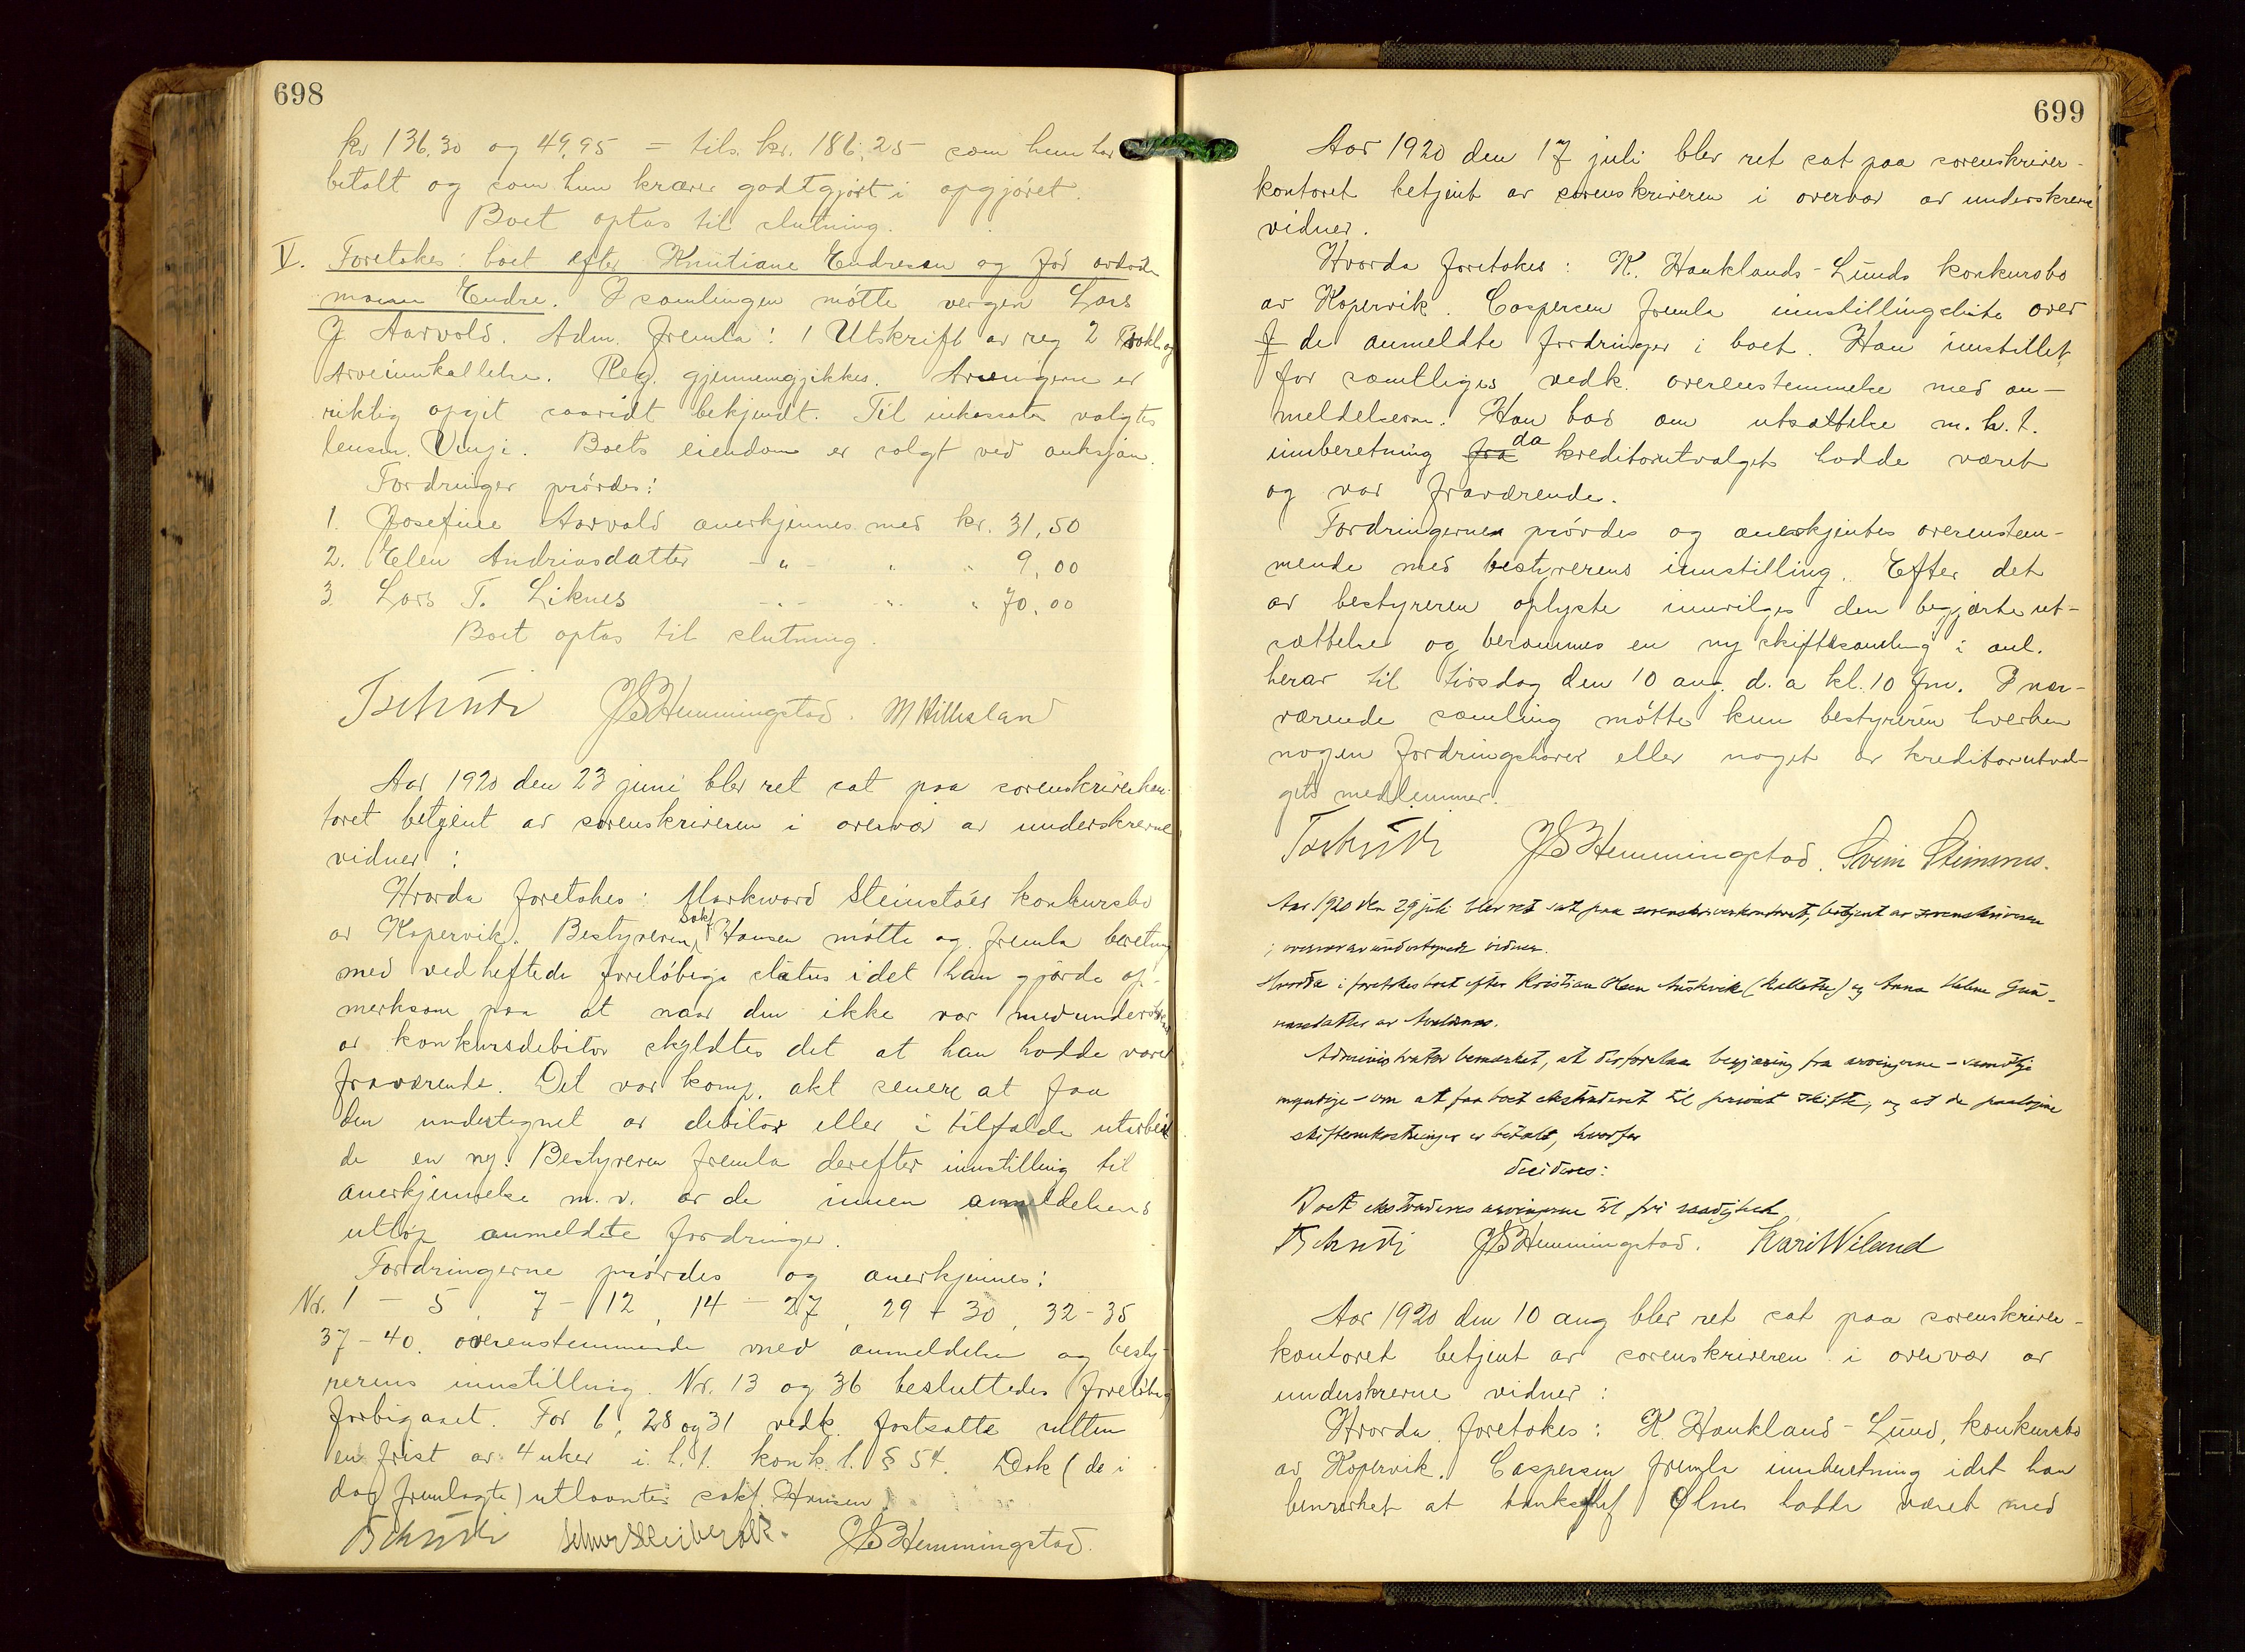 698
kr 136,30 og 49,95 = tils. kr. 186,25 som hun har
betalt og som hun kræver godtgjort i opgjøret.
Boet optas til slutning.
V. Foretokes: boet efter Knutiane Endresen og før avdøde
mann Endre. I samlingen møtte vergen Lars
J. Aarvold. Adm. fremla: 1 Utskrift av reg 2 Prokl. og
Arveinnkallelse. Reg. gjennemgikkes. Arvingene er
riktig opgit saavidt bekjendt. Til inkassator valgtes
lensm. Vinje. Boets eiendom er solgt ved auksjon.
Fordringer prøvdes:
1. Josefine Aarvold anerkjennes med kr. 31,50
2. Elen Andriasdatter - " - " " 9,00
3 Lars T. Liknes - " - " " 70,00
Boet optas til slutning.
Tschudi JSHemmingstad. M Hillesland
Aar 1920 den 23 juni blev ret sat paa sorenskriverkon-
toret betjent av sorenskriveren i overvær av underskrevne
vidner:
Hvorda foretokes: Markward Steinstøes konkursbo
av Kopervik. Bestyreren, sakf. Hansen møtte og fremla beretning
med vedheftede foreløbige status idet han gjorde op-
merksom paa at naar den ikke var medunderskrevet
av konkursdebitor skyldtes det at han hadde været
fraværende. Det var komp. akt senere at faa
den undertegnet av debitor eller i tilfælde utarbei-
de en ny. Bestyreren fremla derefter innstilling til
anerkjennelse m.v. av de innen anmeldelsens
utløp anmeldte fordringer.
Fordringerne prøvdes og anerkjennes:
Nr. 1 - 5, 7 - 12, 14 - 27, 29 + 30, 32 - 35
37 - 40. overenstemmende med anmeldelse og besty-
rerens innstilling. Nr. 13 og 36 besluttedes foreløbig
forbigaaet. For 6, 28 og 31 vedk. fastsatte retten
en frist av 4 uker i. h. t. konk. l. § 54. Dok (de i
dag fremlagte) utlaantes sakf. Hansen.
Tschudi JSHemmingstad.
699
Aar 1920 den 17 juli blev ret sat paa sorenskriver-
kontoret betjent av sorenskriveren i overvær av underskrevne
vidner.
Hvorda foretokes: K. Hauklands-Lunds konkursbo
av Kopervik. Caspersen fremla innstillingsliste over
de anmeldte fordringer i boet. Han innstillet
for samtliges vedk. overenstemmelse med an-
meldelserne. Han bad om utsættelse m. h. t.
innberetning fra da kreditorutvalget hadde været
og var fraværende.
Fordringerne prøvdes og anerkjentes overenstem-
mende med bestyrerens innstilling. Efter det
av bestyreren oplyste innvilges den begjærte ut-
sættelse og berammes en ny skiftesamling i anl.
herav til tirsdag den 10 aug. d. a kl. 10 fm. I nær-
værende samling møtte kun bestyreren hverken
nogen fordringshaver eller noget av kreditorutval-
gets medlemmer.
Tschudi JSHemmingstad. Svein Stemnes.
Aar 1920 den 29 juli blev ret sat paa sorenskriverkontoret, betjent av sorenskriveren
i overvær av undertegnede vidner.
Hvorda i foretokes boet efter Kristian Olsen Austevik (Kallekv) og Anna Helene Gun-
narsdatter av
Administrator bemærket, at der forelaa begjæring fra arvingerne - samtlige
myndige - om at faa boet ekstraderet til privat skifte, og at de paaløpne
skifteomkostninger er betalt, hvorfor
decideres:
Boet ekstraderes arvingerne til fri raadighet.
Tschudi JSHemmingstad. Kari Wiland
Aar 1920 den 10 aug blev ret sat paa sorenskriver-
kontoret betjent av sorenskriveren i overvær av
underskrevne vidner:
Hvorda foretokes: K. Haukland-Lund, konkursbo
av Kopervik. Caspersen fremla innberetning idet han
bemerket at banksjef Ølnes hadde været med